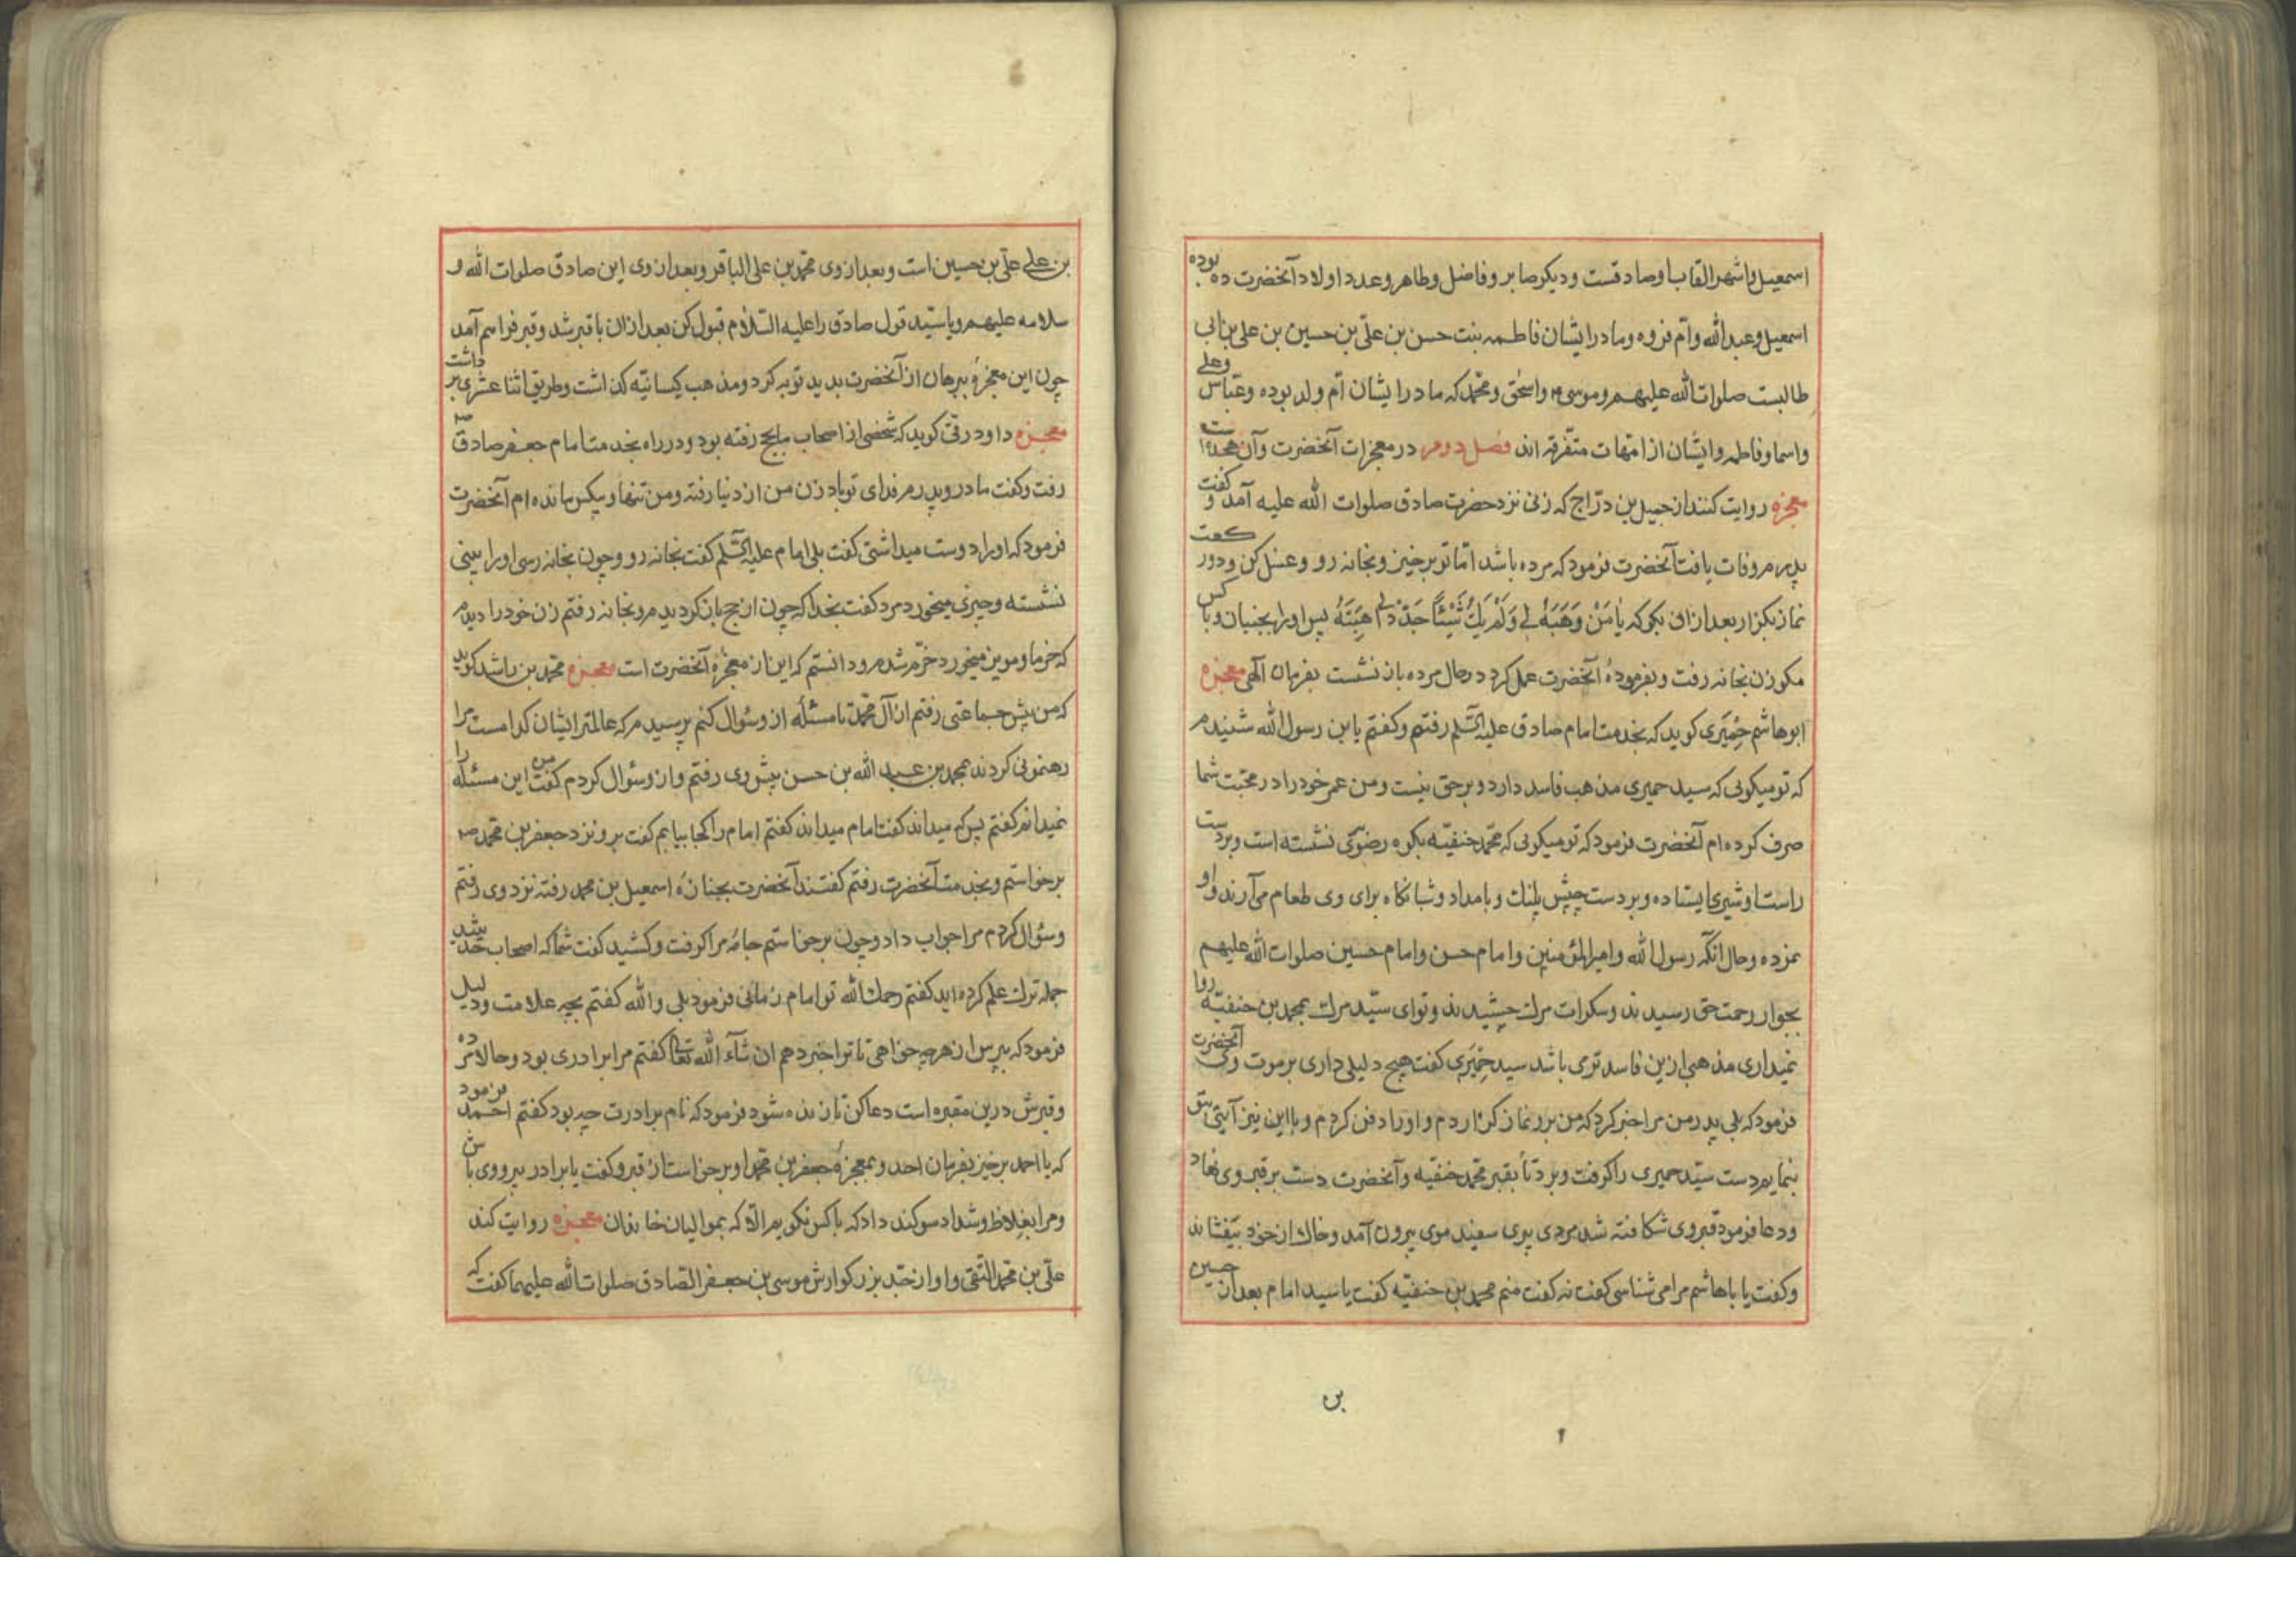 اسمعیل واشهر القاب او صادقست و دیکر صابر و فاضل و طاهر و عدد اولاد آنحضرت ده بوده
اسمعیل و عبدالله و ام فروه و مادر ایشان فاطمه بنت حسن بن علی بن حسین بن علی بن ابی
طالبست صلوات الله علیهم و موسی و اسحق و محمد که مادر ایشان ام ولد بوده و عباس و علی
و اسما و فاطمه و ایشان از امهات متفرقه اند فصل دوم در معجزات آنحضرت و آن هجده است
معجزه روایت کنند از جمیل بن دراج که زنی نزد حضرت صادق صلوات الله علیه آمد و کفت
پدرم وفات یافت آنحضرت فرمود که مرده باشد اما تو برخیز و بخانه رو و غسل کن و دور کعت
نماز بکزار بعد از ان بکو که یا مَنْ وَهَبَهُ لی وَلَمْ یَكُ شَیْئًا جَدِّدْ لی هِبَتَهُ پس او را بجنبان و با کس
مکو زن بخانه رفت و بفرموده آنحضرت عمل کرد در حال مرده باز نشست بفرمان الهی معجزه
ابوهاشم حمیری کوید که بخدمت امام صادق علیه السلم رفتم و کفتم یا بن رسول الله شنیدم
که تو میکویی که سید حمیری مذهب فاسد دارد و بر حق نیست و من عمر خود را در محبت شما
صرف کرده ام آنحضرت فرمود که تو میکویی که محمد حنفیه بکوه رضوی نشسته است و بر دست
راست او شیری ایستاده و بر دست چپش پلنك و بامداد و شبانکاه برای وی طعام می آرند و او
نمرده و حال آنکه رسول الله و امیر المؤمنین و امام حسن و امام حسین صلوات الله علیهم
بجوار رحمت حق رسیدند و سکرات مرك چشیدند و تو ای سید مرك بمحمد بن حنفیه روا
نمیداری مذهبی ازین فاسد تری باشد سید حمیری کفت هیچ دلیلی داری بر موت وی آنحضرت
فرمود که بلی پدر من مرا خبر کرد که من برو نماز کزاردم و او را دفن کردم و با این نیز آیتی بتو
بنمایم دست سید حمیری را کرفت و برد تا بقبر محمد حنفیه و آنحضرت دست بر قبر وی نهاد
و دعا فرمود قبر وی شکافته شد مردی موی سفید موی بیرون آمد و خاك از خود بیفشاند
و کفت یا باهاشم مرا می شناسی کفت نه کفت منم محمد بن حنفیه کفت یا سید امام بعد از حسین
بن
بن علی علی بن حسین است و بعد از وی محمد بن علی الباقر و بعد از وی این صادق صلوات الله و
سلامه علیهم و یا سید قول صادق را علیه السلام قبول کن بعد از ان با قبر شد و قبر فراهم آمد
چون این معجزه و برهان از آنحضرت بدید توبه کرد و مذهب کیسانیه کذاشت و طریق اثنا عشری بر داشت
معجزه داود رقی کوید که شخصی از اصحاب ما بحج رفته بود و در راه بخدمت امام جعفر صادق
رفت و کفت مادر و پدرم فدای تو باد زن من از دنیا رفته و من تنها و بیکس مانده ام آنحضرت
فرمود که او را دوست میداشتی کفت بلی امام علیه السلم کفت بخانه رو و چون بخانه رسی او را بینی
نشسته و چیزی میخورد مرد کفت بخدا که چون از حج باز کردیدم و بخانه رفتم زن خود را دیدم
که خرما و مویز میخورد خرم شدم و دانستم که این از معجزه آنحضرت است معجزه محمد بن راشد کوید
که من پیش جماعتی رفتم از آل محمد تا مسئله از و سؤال کنم پرسیدم که عالمتر ایشان کدامست مرا
رهنمونی کردند بمحمد بن عبد الله بن حسن پیش وی رفتم و از و سؤال کردم کفت من این مسئله را
نمیدانم کفتم پس که میداند کفت امام میداند کفتم امام را کجا بیابم کفت برو نزد جعفر بن محمد
برخواستم و بخدمت آنحضرت رفتم کفتند آنحضرت بجنازه اسمعیل بن محمد رفته نزد وی رفتم
و سؤال کردم مرا جواب داد و چون برخاستم جامه مرا کرفت و کشید کفت شما که اصحاب حدیثید
جمله ترك علم کرده اید کفتم رحمك الله تو امام زمانی فرمود بلی و الله کفتم بچه علامت و دلیل
فرمود که بپرس از هر چه خواهی تا ترا خبر دهم ان شآء الله تعالی کفتم مرا برادری بود و حالا مرده
و قبرش درین مقبره است دعا کن تا زنده شود فرمود که نام برادرت چه بود کفتم احمد فرمود
که یا احمد برخیز بفرمان احد و بمعجزه جعفر بن محمد او برخواست از قبر و کفت یا برادر پیرو وی باش
و مرا بغلاظ و شداد سوکند داد که با کس نکویم الا که بموالیان خاندان معجزه روایت کند
علی بن محمد التقی و او از جد بزرکوارش موسی بن جعفر الصادق صلوات الله علیهما کفت که